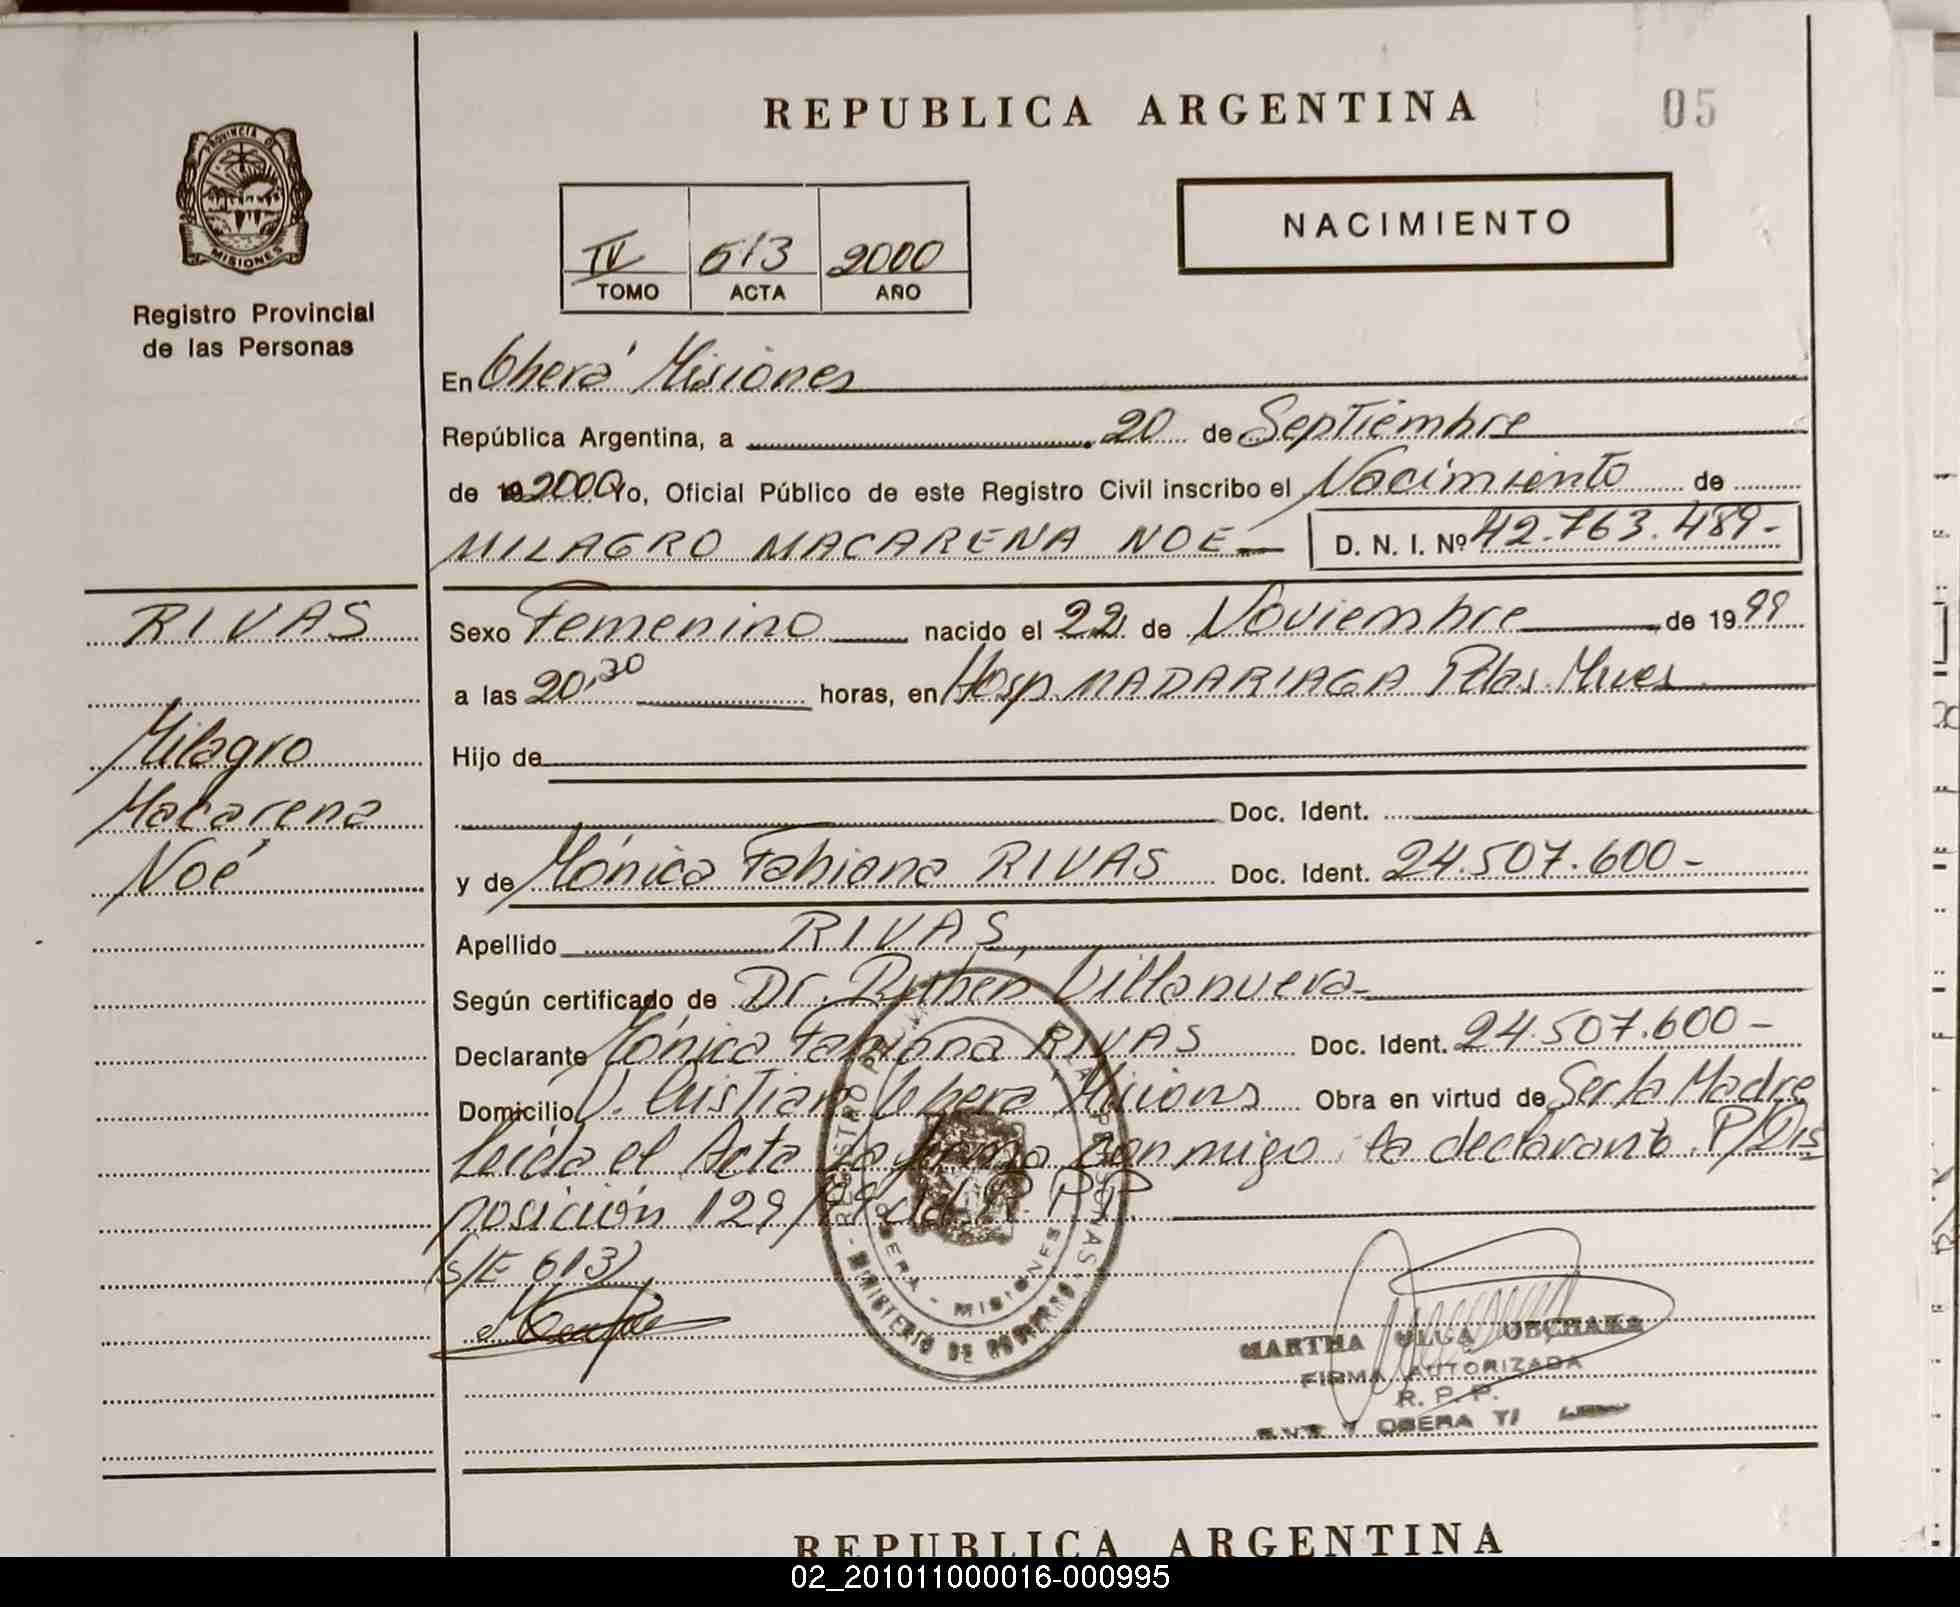 REPUBLICA ARGENTINA
05
PROVINCIA DE
MISIONES
Registro Provincial
de las Personas
NACIMIENTO
IV 613 2000
TOMO ACTA AÑO
En Oberá Misiones
República Argentina, a 20 de Septiembre
de 19 2000 Yo, Oficial Público de este Registro Civil inscribo el Nacimiento de
MILAGRO MACARENA NOE D. N. I. Nº 42.763.489-
RIVAS
Milagro
Macarena
Noé
Sexo Femenino nacido el 22 de Noviembre de 1999
a las 20,30 horas, en Hosp. MADARIAGA Pdas. Mnes
Hijo de
Doc. Ident.
y de Mónica Fabiana RIVAS Doc. Ident. 24.507.600-
Apellido RIVAS
Según certificado de Dr. Rubén Villanueva
Declarante Mónica Fabiana RIVAS Doc. Ident. 24.507.600-
Domicilio V. Cristian Oberá Misions Obra en virtud de Ser la Madre
Leída el Acta la firma conmigo la declarante. P/Dis
posición 129/99 del R.P.P.
(S/E 613)
REGISTRO PROV. DE LAS PERSONAS
OBERA - MISIONES
MINISTERIO DE GOBIERNO
MARTHA OBCHAKA
FIRMA AUTORIZADA
R. P. P.
OBERA
REPUBLICA ARGENTINA
02_201011000016-000995